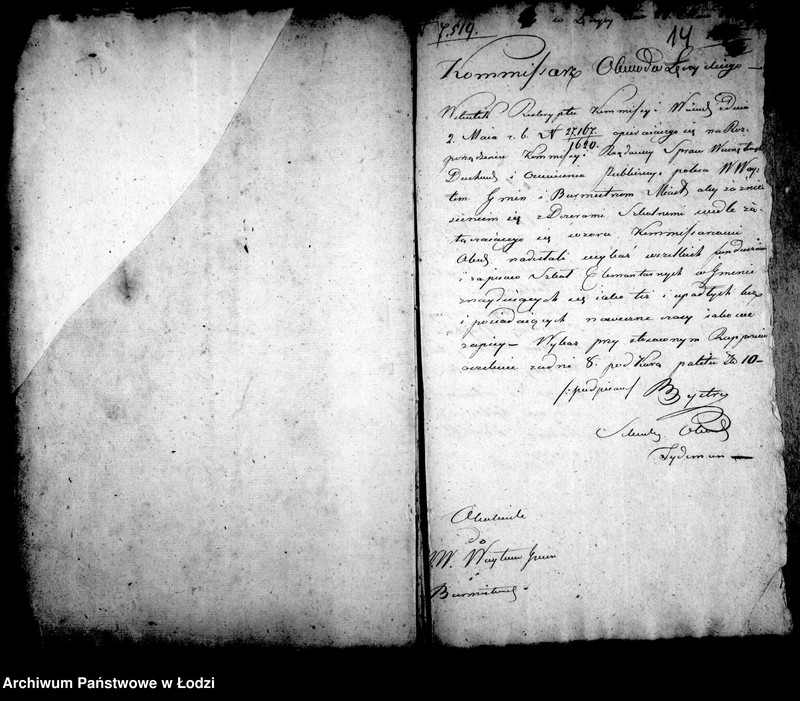 7,519. w
14
Kommissarz Obwodu Łęczyckiego
Wskutek Reskryptu Kommisyi Wdzkiej z dnia
2. Maia r. b. N 27,167/1620. opieraiącego się na Roz-
porządzeniu Kommisyi Rządowey Spraw Wewnętrznych
Duchow. i Oświecenia Publiczn. poleca WWoy-
tom Gmin i Burmistrzom Miast aby
się z Dozorami Szkolnemi wedle za-
łączaiącego się wzoru Kommissarzowi
Obwd nadesłali wykaz wszelkich funduszów
i zapisów Szkół Elementarnych w Gminie
znayduiących się iako też i upadłych
i posiadaiących na wieczne czasy iakowe
zapisy — Wykaz przy stosownym Rapporcie
oczekuie za dni 8. pod karą 10 —
/:podpisano/ Bystry
Sekretz Obwd
Tydeman —
Okolnik
do
W.W. Woytów Gmin
i
Burmistrzów
Archiwum Państwowe w Łodzi